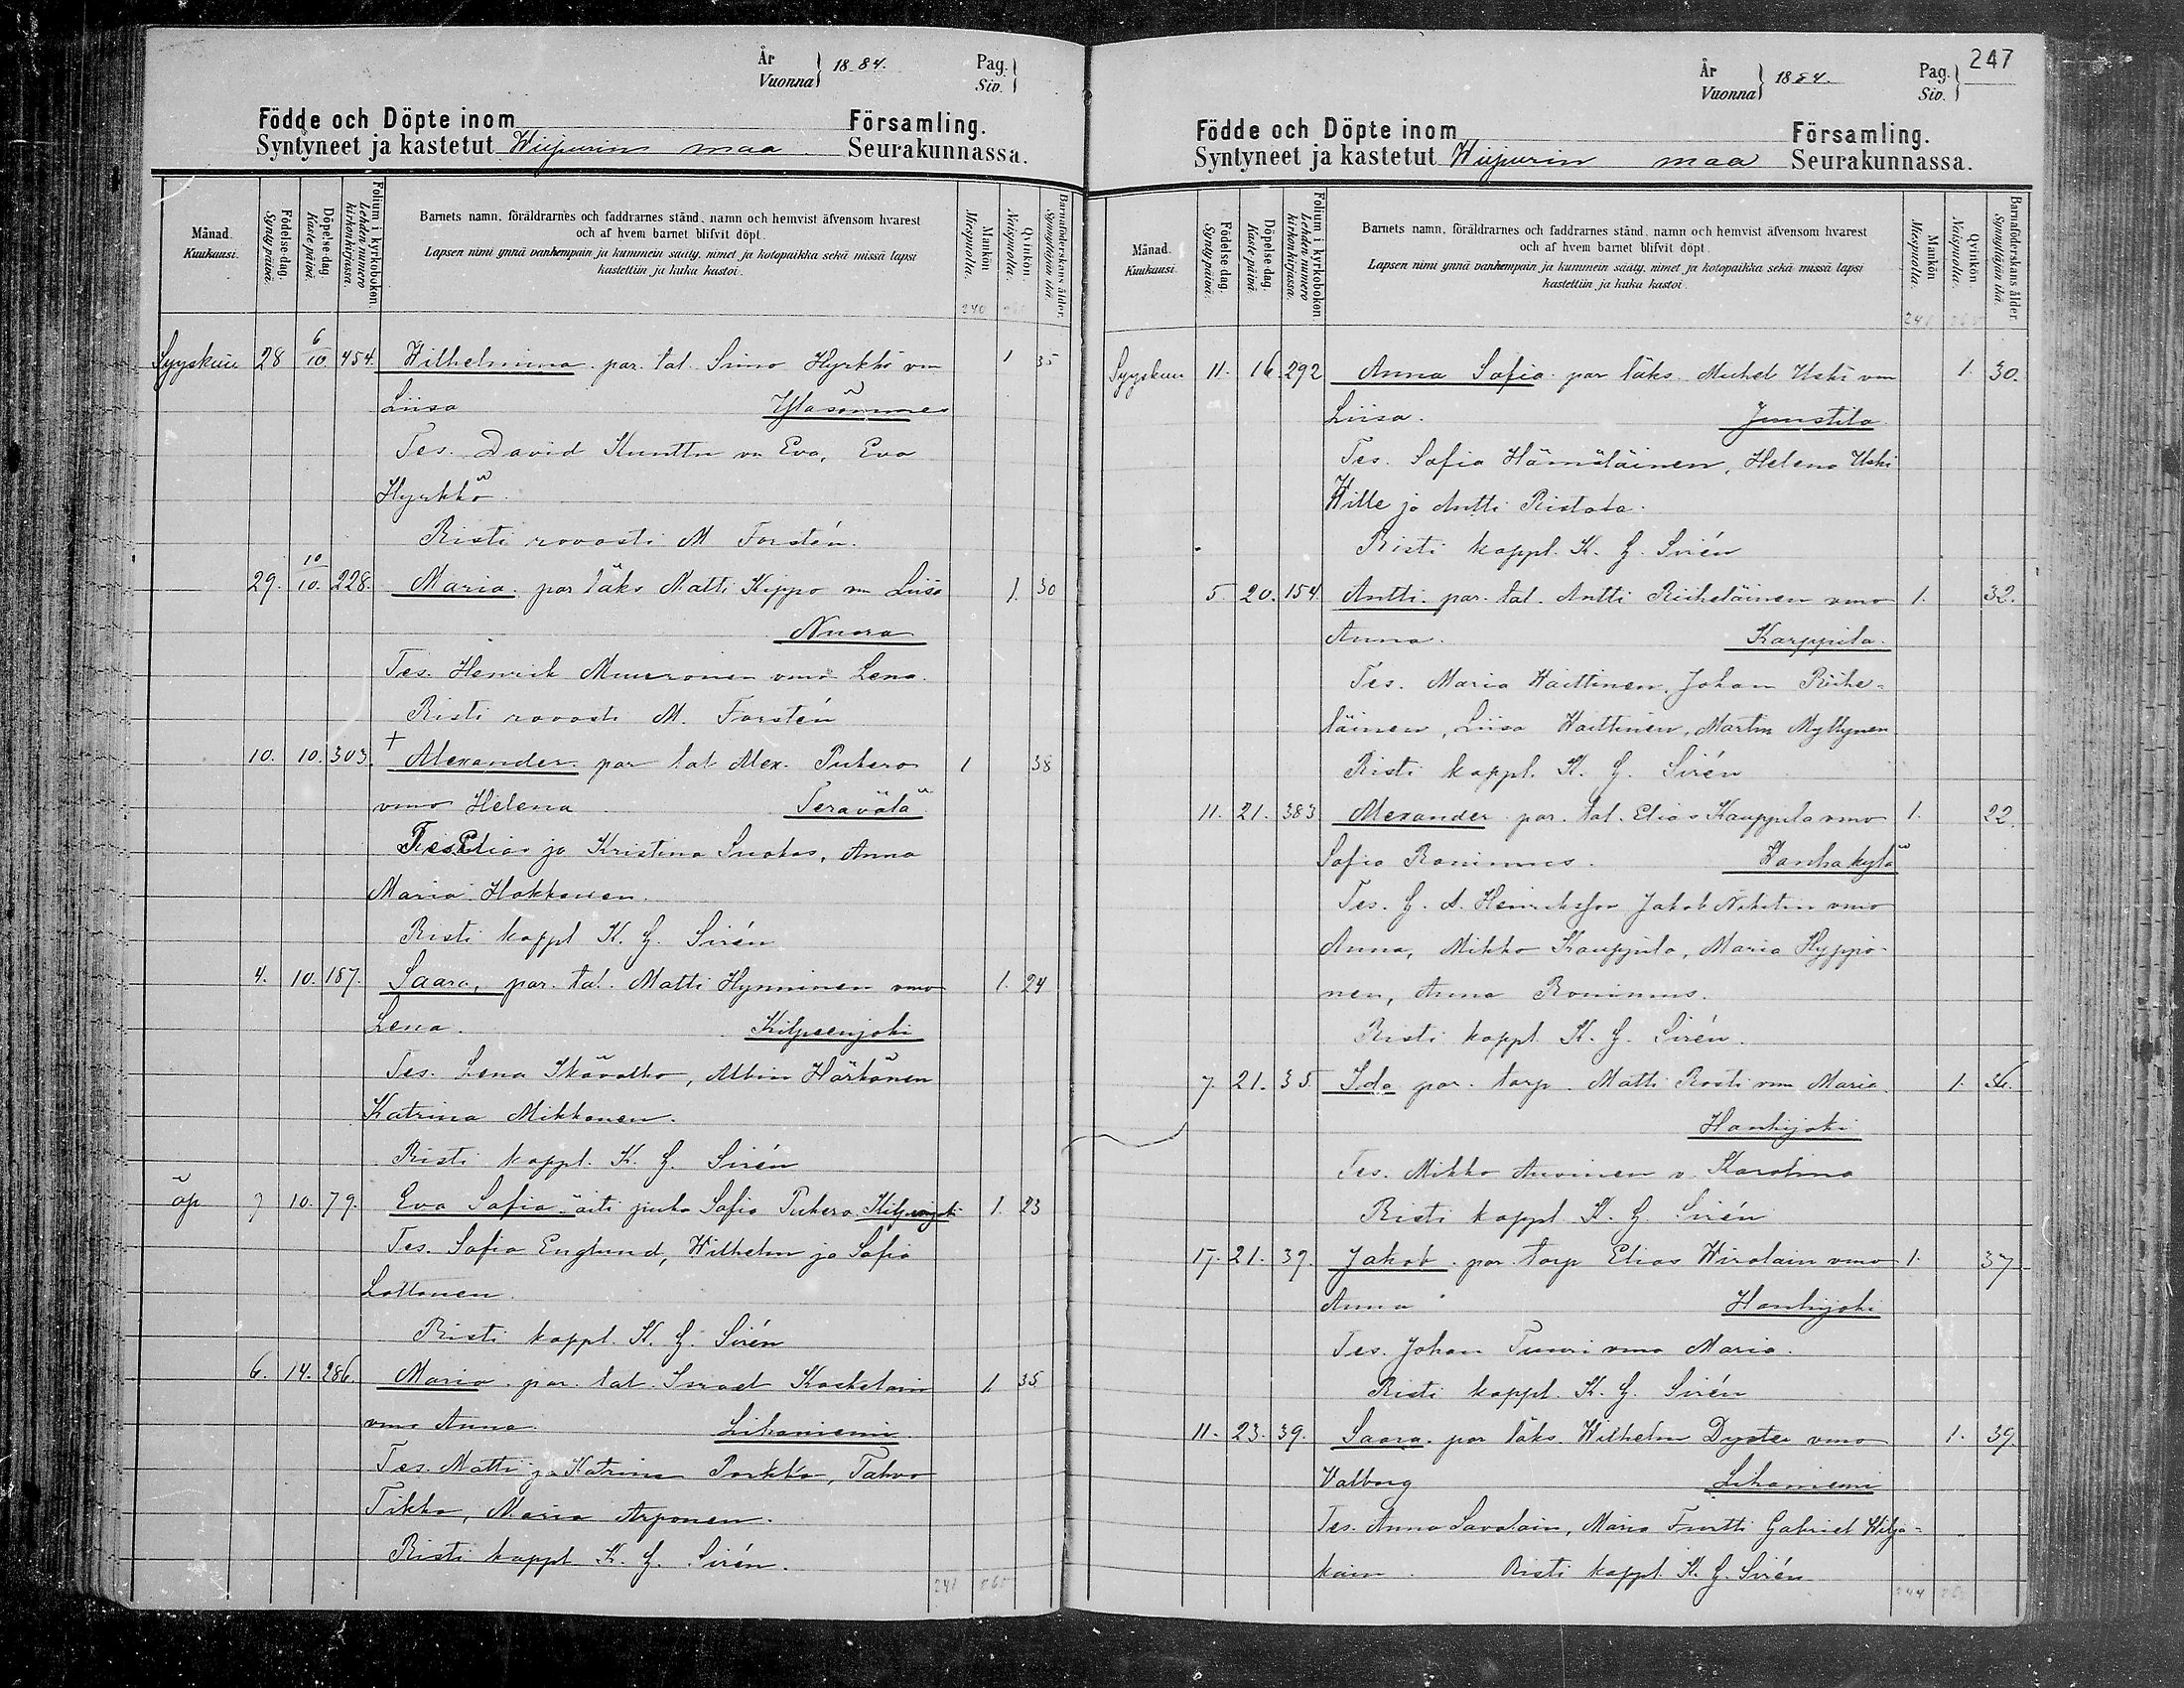 År
Vuonna } 1884.
Pag.
Siv. }
Födde och Döpte inom Församling.
Syntyneet ja kastetut Wiipurin maa Seurakunnassa.
Månad. Kuukausi.
Födelse-dag. Synty päivä.
Döpelse-dag. Kaste päivä.
Folium i kyrkobokon. Lehden numero kirkonkirjassa.
Barnets namn, föräldrarnes och faddrarnes stånd, namn och hemvist äfvensom hvarest
och af hvem barnet blifvit döpt.
Lapsen nimi ynnä vanhempain ja kummein sääty, nimet ja kotopaikka sekä missä lapsi
kastettiin ja kuka kastoi.
Mankön. Miespuolia.
Qvinkön. Naispuolia.
Barnaföderskans ålder. Synnyttäjän ikä.
240
Syyskuu 28 6/10 454. Wilhelmina par. tal. Simo Hyrkkö vm 1 35
Liisa Yläsommee
Tes. David Kunttu vm Eva, Eva
Hyrkkö
Risti rovasti M Forstén.
29. 10/10. 228. Maria. par läks Matti Kippo vm Liisa 1. 30
Nuora
Tes. Henrik Muuronen vmo Lena.
Risti rovasti M. Forstén
10. 10. 303. + Alexander par tal Alex. Puhero 1 38
vmo Helena Terävälä
Tes Elias ja Kristina Suokas, Anna
Maria Hakkonen.
Risti kappl K. G. Sirén
4. 10. 187. Saara, par. tal. Matti Hynninen vmo 1. 24
Lena. Kilpeenjoki
Tes. Lena Ikävalko, Albin Härkönen
Katrina Mikkonen.
Risti kappl. K. G. Sirén
äp 7 10. 79. Eva Sofia äiti piika Sofia Puhero Kilpeenjoki 1. 23
Tes. Sofia Englund, Wilhelm ja Sofia
Lottonen.
Risti kappl. K. G. Sirén
6. 14. 286. Maria. par. tal. Israel Koskelain 1. 35
vmo Anna. Lihaniemi
Tes. Matti ja Katrina Porkka, Tahvo
Tikka, Maria Arponen.
Risti kappl K. G. Sirén.
241
247
År
Vuonna } 1884.
Pag.
Siv. }
Födde och Döpte inom Församling.
Syntyneet ja kastetut Wiipurin maa Seurakunnassa.
Månad. Kuukausi.
Födelse-dag. Synty päivä.
Döpelse-dag. Kaste päivä.
Folium i kyrkobokon. Lehden numero kirkonkirjassa.
Barnets namn, föräldrarnes och faddrarnes stånd, namn och hemvist äfvensom hvarest
och af hvem barnet blifvit döpt.
Lapsen nimi ynnä vanhempain ja kummein sääty, nimet ja kotopaikka sekä missä lapsi
kastettiin ja kuka kastoi.
Mankön. Miespuolia.
Qvinkön. Naispuolia.
Barnaföderskans ålder. Synnyttäjän ikä.
241
Syyskuu 11. 16. 292 Anna Sofia par läks. Mickel Uski vm 1. 30.
Liisa. Juustila
Tes. Sofia Hämäläinen, Helena Uski
Wille ja Antti Ristola.
Risti kappl. K. G. Sirén
5. 20. 154. Antti par. tal. Antti Riiheläinen vmo 1. 32.
Anna. Karppila.
Tes. Maria Haittinen, Johan Riihe-
läinen, Liisa Haittinen, Martin Myttynen
Risti kappl. K. G. Sirén
11. 21. 383 Alexander par. tal. Elias Kauppila vmo 1. 22.
Sofia Ronimus. Vanhakylä
Tes. G. A. Henriksson Jakob Nikitin vmo
Anna, Mikko Kauppila, Maria Hyppö-
nen, Anna Ronimus.
Risti kappl. K. G. Sirén.
7. 21. 35. Ida par. torp. Matti Rosti vm Maria. 1.
Hanhijoki
Tes. Mikko Auvinen v. Karolina
Risti kappl. K. G. Sirén
17. 21. 39. Jakob. par. torp Elias Wirolain vmo 1. 37
Anna Hanhijoki
Tes. Johan Tuuri vmo Maria.
Risti kappl. K. G. Sirén
11. 23. 39. Saara. par läks. Wilhelm Dyster vmo 1. 39.
Valborg Lihaniemi
Tes. Anna Savolain, Maria Furtti Gabriel Wilja-
kain. Risti kappl. K. G. Sirén
244